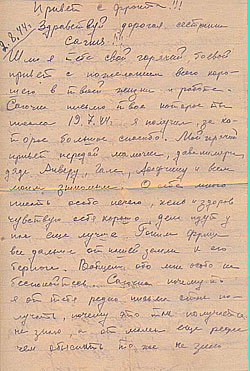 Привет с фронта!!!
2.8.44г. Здравствуй дорогая сестрица
Шлю я тебе свой горячий, боевой
привет с пожеланием всего хоро-
шего в твоей жизни и работе.
письмо твое которое ты
писала 19.7.VI. я получил, за ко-
торое большое спасибо. Мой горячий
привет передай мамочке,
дяде Анверу, и всем
моим знакомым. О себе много
писать особо нечего, жив и здоров
чувствую себя хорошо дела идут у
нас еще лучше. Гоним фрица
все дальше от нашей земли к его
берлоге. Вобщем, обо мне особо не
беспокойтесь. почему-то
я от тебя редко письма стал по-
лучать, почему это так получается
не знаю а от мамы еще реже
чем объяснить то же не знаю